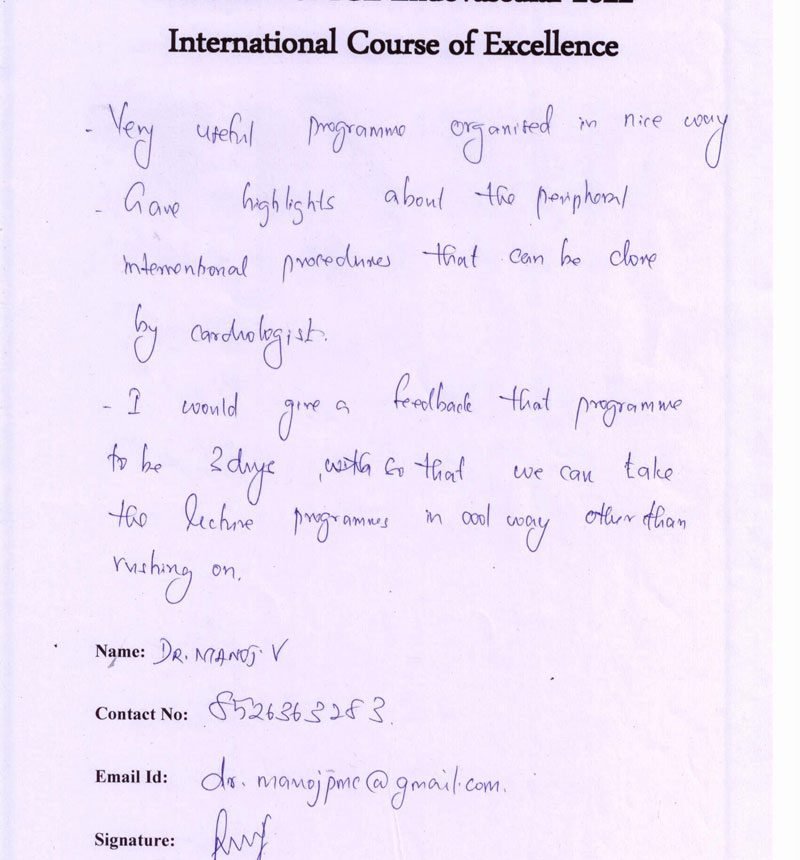 International Course of Excellence
- Very useful programme organised in nice way
- Gave highlights about the peripheral
interventional procedures that can be done
by cardiologist.
- I would give a feedback that programme
to be 3 days, so that we can take
the lecture programmes in cool way other than
rushing on.
Name: DR. MANOJ. V
Contact No: 8526363283.
Email Id: dr.manojpmc@gmail.com.
Signature: